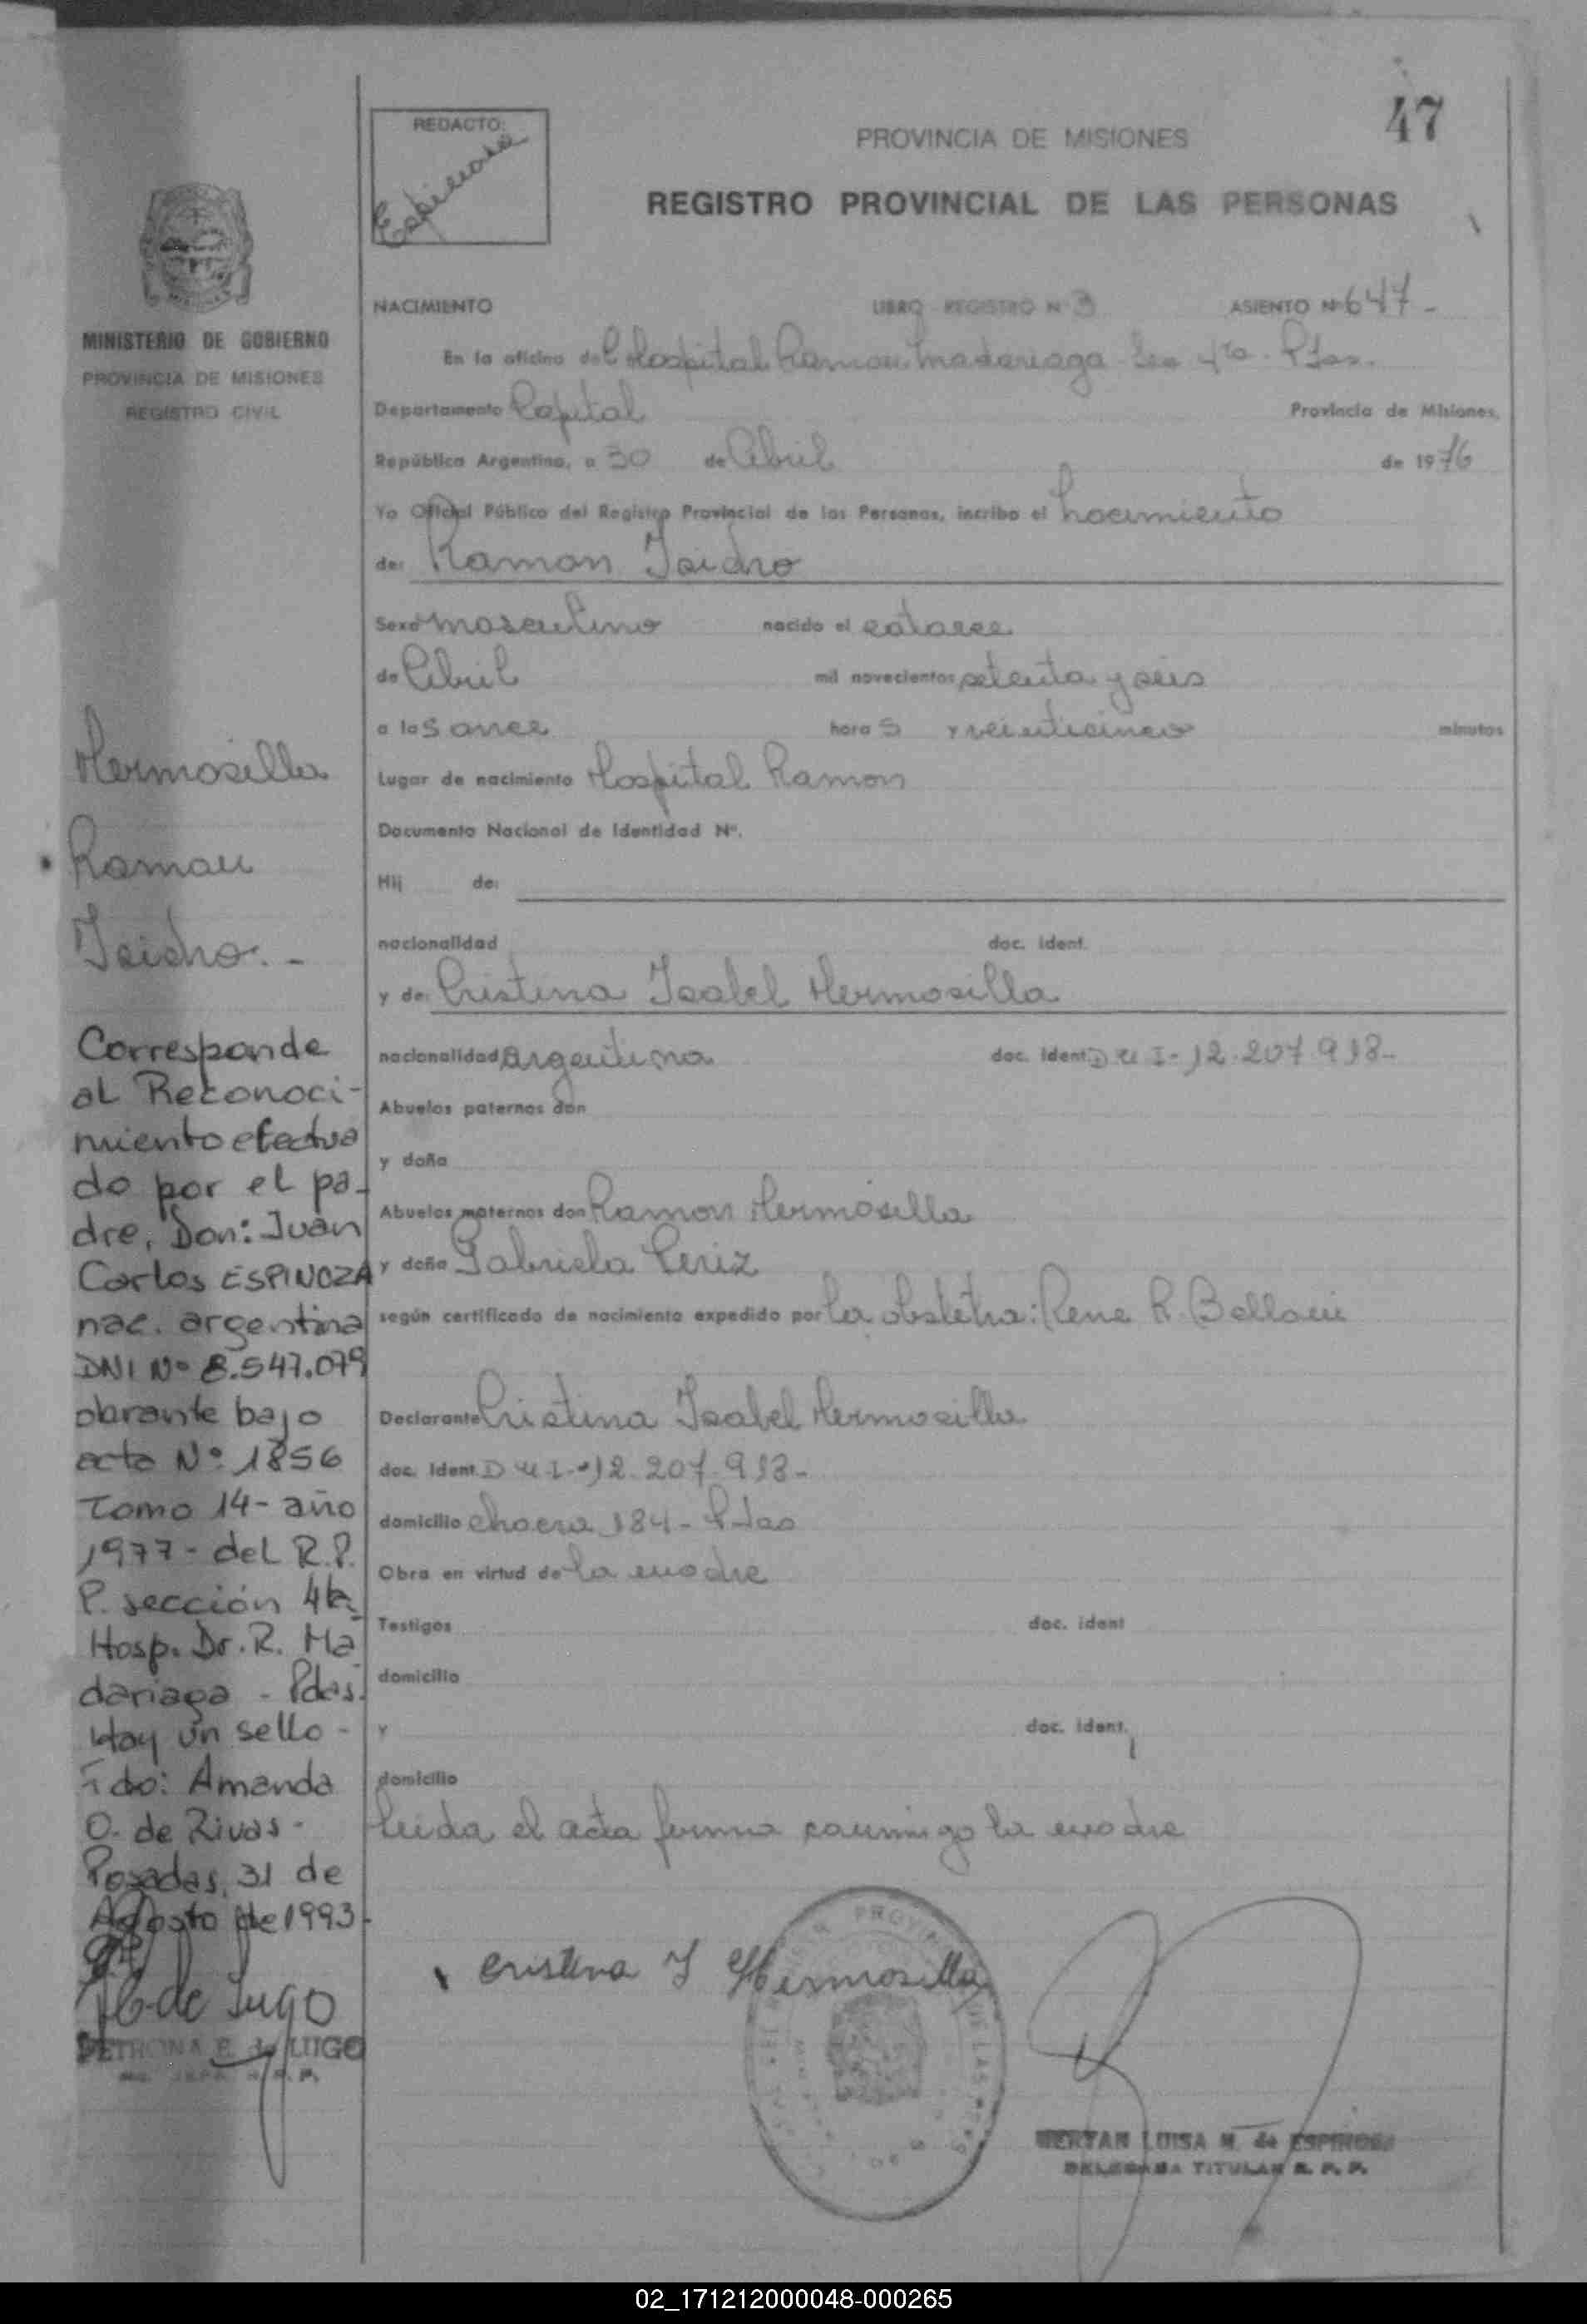 47
REDACTO:
Espinosa
PROVINCIA DE MISIONES
REGISTRO PROVINCIAL DE LAS PERSONAS
MINISTERIO DE GOBIERNO
PROVINCIA DE MISIONES
REGISTRO CIVIL
NACIMIENTO LIBRO REGISTRO Nº 3 ASIENTO Nº 647-
En la oficina del Hospital Ramon Madariaga Sec 4ta. Pdas.
Departamento Capital Provincia de Misiones,
República Argentina, a 30 de Abril de 1976
Yo Oficial Público del Registro Provincial de las Personas, incribo el nacimiento
de: Ramon Isidro
Sexo masculino nacido el catorce
de Abril mil novecientos setenta y seis
a las once horas y veinticinco minutos
Lugar de nacimiento Hospital Ramon
Documento Nacional de Identidad Nº.
Hij de:
nacionalidad doc. ident.
y de: Cristina Isabel Hermosilla
nacionalidad argentina doc. ident D N I - 12.207.918-
Abuelos paternos don
y doña
Abuelos maternos don Ramon Hermosilla
y doña Gabriela
según certificado de nacimiento expedido por la obstetra: Rene R.
Declarante Cristina Isabel Hermosilla
doc. ident. D N I - 12.207.918-
domicilio chacra 184 - Pdas
Obra en virtud de la madre
Testigos doc. ident
domicilio
y doc. ident.
domicilio
leida el acta firma conmigo la madre
Cristina I Hermosilla
DELEGADA TITULAR R. P. P.
Hermosilla
Ramon
Isidro.-
Corresponde
al Reconoci-
miento efectua
do por el pa-
dre, Don: Juan
Carlos ESPINOZA
nac. argentina
DNI Nº 8.547.079
obrante bajo
acta Nº 1856
Tomo 14- año
1977- del R.P.
P. sección 4ta
Hosp. Dr. R. Ma
dariaga - Pdas.
Hay un sello -
Fdo: Amanda
O. de Rivas -
Posadas, 31 de
Agosto de 1993-
de Lugo
PETRONA E. de LUGO
02_171212000048-000265